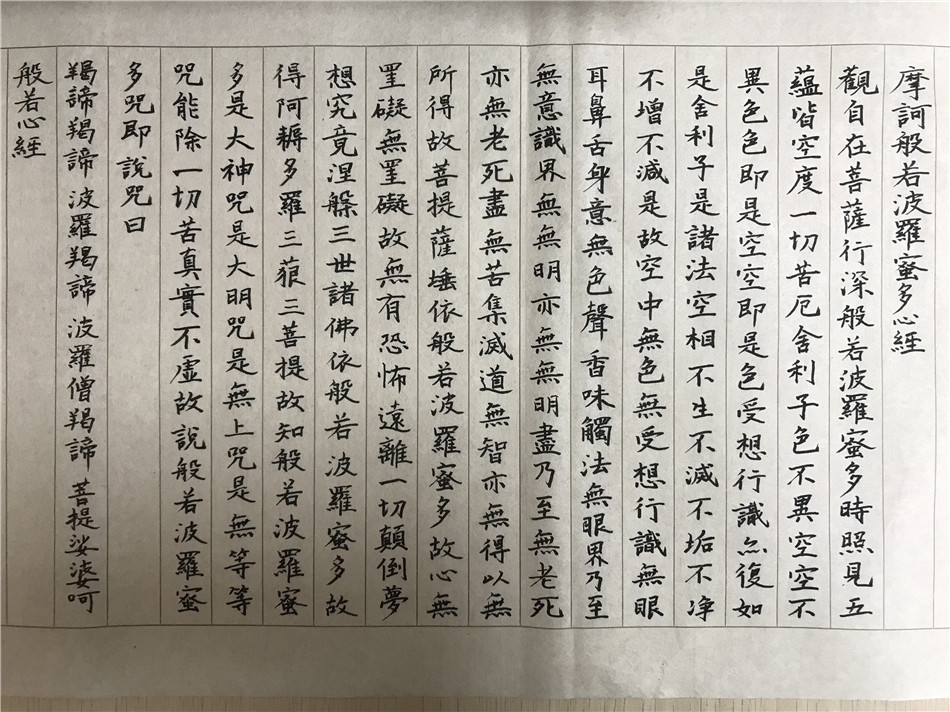 摩訶般若波羅蜜多心經
觀自在菩薩行深般若波羅蜜多時照見五
蘊皆空度一切苦厄舍利子色不異空空不
異色色即是空空即是色受想行識亦復如
是舍利子是諸法空相不生不滅不垢不净
不增不減是故空中無色無受想行識無眼
耳鼻舌身意無色聲香味觸法無眼界乃至
無意識界無無明亦無無明盡乃至無老死
亦無老死盡無苦集滅道無智亦無得以無
所得故菩提薩埵依般若波羅蜜多故心無
罣礙無罣礙故無有恐怖遠離一切顛倒夢
想究竟涅槃三世諸佛依般若波羅蜜多故
得阿耨多羅三藐三菩提故知般若波羅蜜
多是大神咒是大明咒是無上咒是無等等
咒能除一切苦真實不虛故說般若波羅蜜
多咒即說咒曰
羯諦羯諦 波羅羯諦 波羅僧羯諦 菩提娑婆呵
般若心經